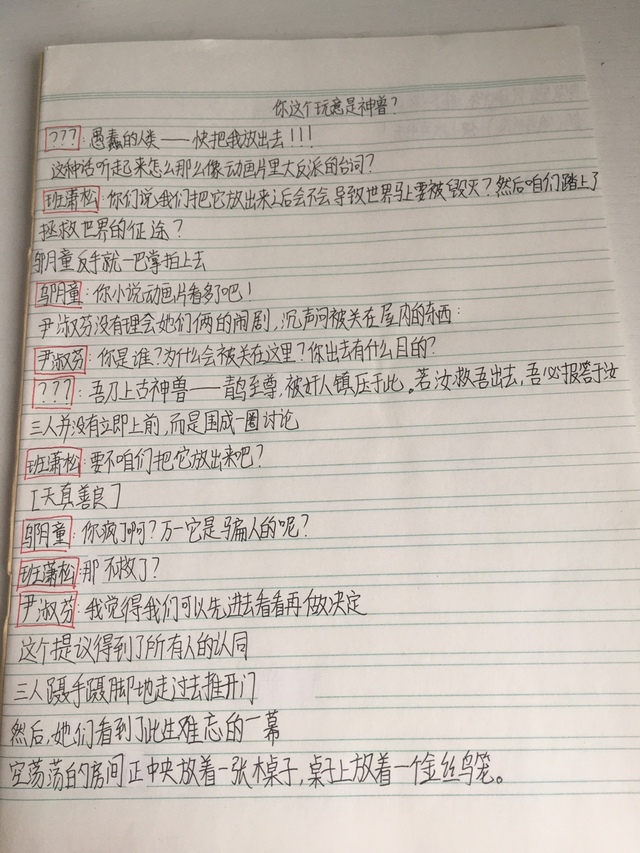 你这个玩意是神兽？
???：愚蠢的人类——快把我放出去！！！
这种话听起来怎么那么像动画片里大反派的台词？
班潇松：你们说我们把它放出来之后会不会导致世界马上要被毁灭？然后咱们踏上了
拯救世界的征途？
邬月童反手就一巴掌拍上去
邬月童：你小说动画片看多了吧！
尹淑芬没有理会她们俩的闹剧，沉声问被关在屋内的东西：
尹淑芬：你是谁？为什么会被关在这里？你出去有什么目的？
???：吾乃上古神兽——青鸾至尊，被奸人镇压于此。若汝救吾出去，吾必报答于汝
三人并没有立即上前，而是围成一圈讨论
班潇松：要不咱们把它放出来吧？
[天真善良]
邬月童：你疯了啊？万一它是骗人的呢？
班潇松：那不救了？
尹淑芬：我觉得我们可以先进去看看再做决定
这个提议得到了所有人的认同
三人蹑手蹑脚地走过去推开门
然后，她们看到了此生难忘的一幕
空荡荡的房间正中央放着一张木桌子，桌子上放着一个金丝鸟笼。